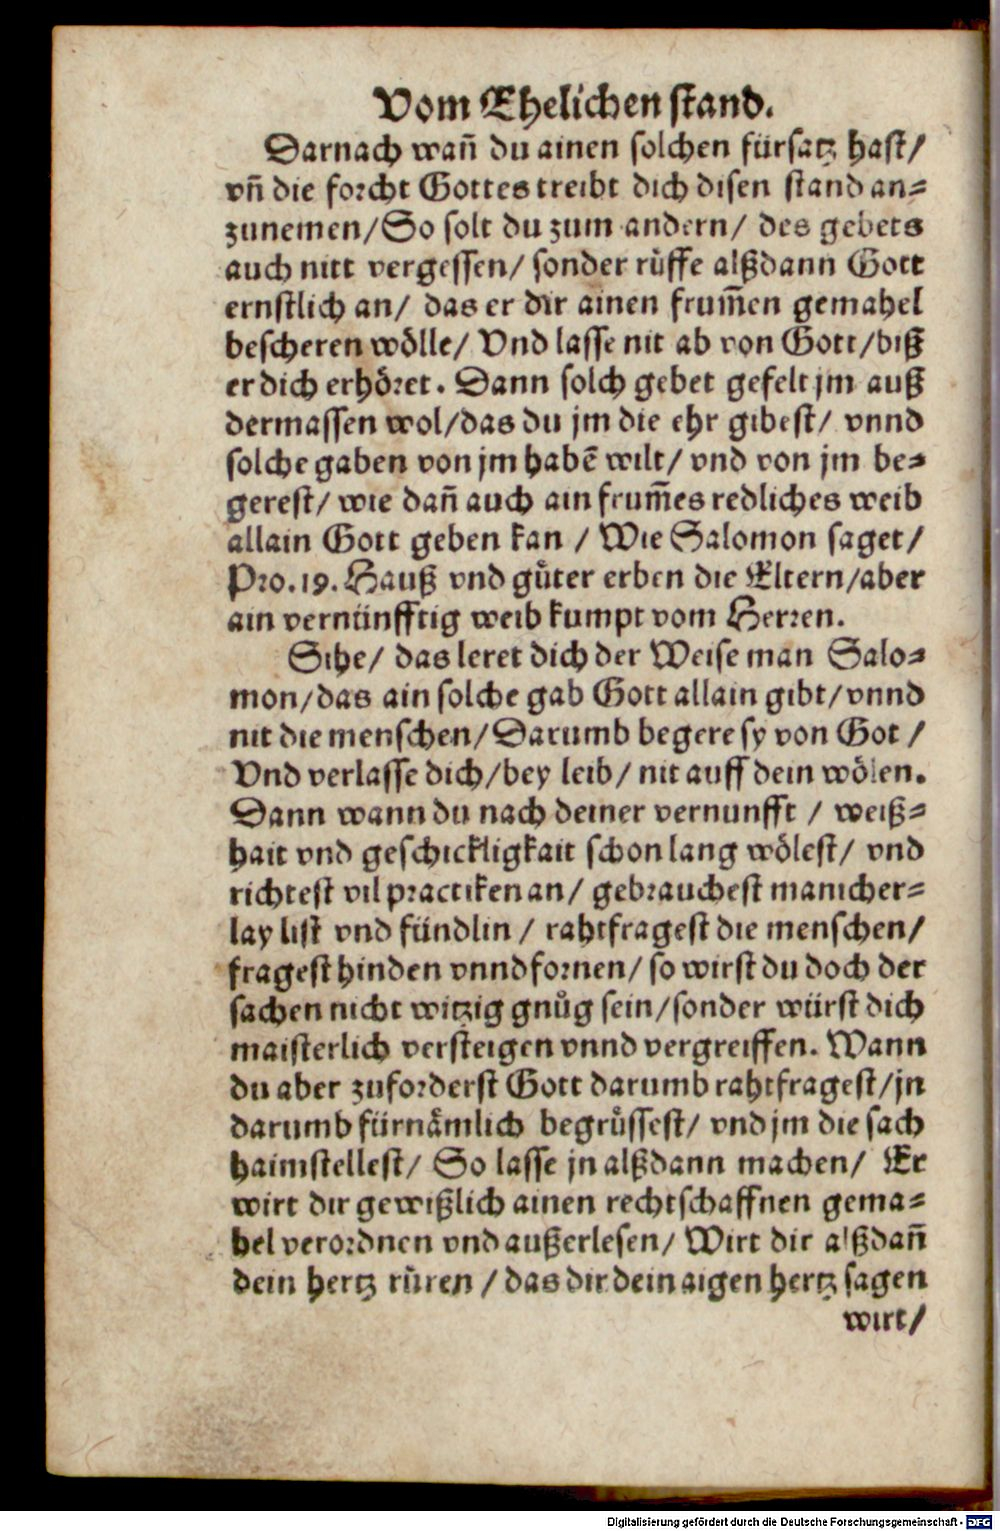 Vom Ehelichen stand.
Darnach wañ du ainen solchen fürsatz hast/
vñ die forcht Gottes treibt dich disen stand an-
zunemen/So solt du zum andern/ des gebets
auch nitt vergessen/ sonder růffe alßdann Gott
ernstlich an/ das er dir ainen frum̃en gemahel
bescheren wölle/ Vnd lasse nit ab von Gott/biß
er dich erhöret. Dann solch gebet gefelt jm auß
dermassen wol/das du jm die ehr gibest/ vnnd
solche gaben von jm habẽ wilt/ vnd von jm be-
gerest/ wie dañ auch ain frum̃es redliches weib
allain Gott geben kan / Wie Salomon saget/
Pro.19. Hauß vnd gůter erben die Eltern/aber
ain vernünfftig weib kumpt vom Herren.
Sihe/ das leret dich der Weise man Salo-
mon/das ain solche gab Gott allain gibt/vnnd
nit die menschen/Darumb begere sy von Got /
Vnd verlasse dich/bey leib/ nit auff dein wölen.
Dann wann du nach deiner vernunfft / weiß-
hait vnd geschickligkait schon lang wölest/ vnd
richtest vil practiken an/ gebrauchest manicher-
lay list vnd fündlin / rahtfragest die menschen/
fragest hinden vnnd fornen/ so wirst du doch der
sachen nicht witzig gnůg sein/sonder würst dich
maisterlich versteigen vnnd vergreiffen. Wann
du aber zuforderst Gott darumb rahtfragest/jn
darumb fürnämlich begrůssest/ vnd jm die sach
haimstellest/ So lasse jn alßdann machen/ Er
wirt dir gewißlich ainen rechtschaffnen gema-
hel verordnen vnd außerlesen/ Wirt dir alßdañ
dein hertz růren / das dir dein aigen hertz sagen
wirt/
Digitalisierung gefördert durch die Deutsche Forschungsgemeinschaft - DFG